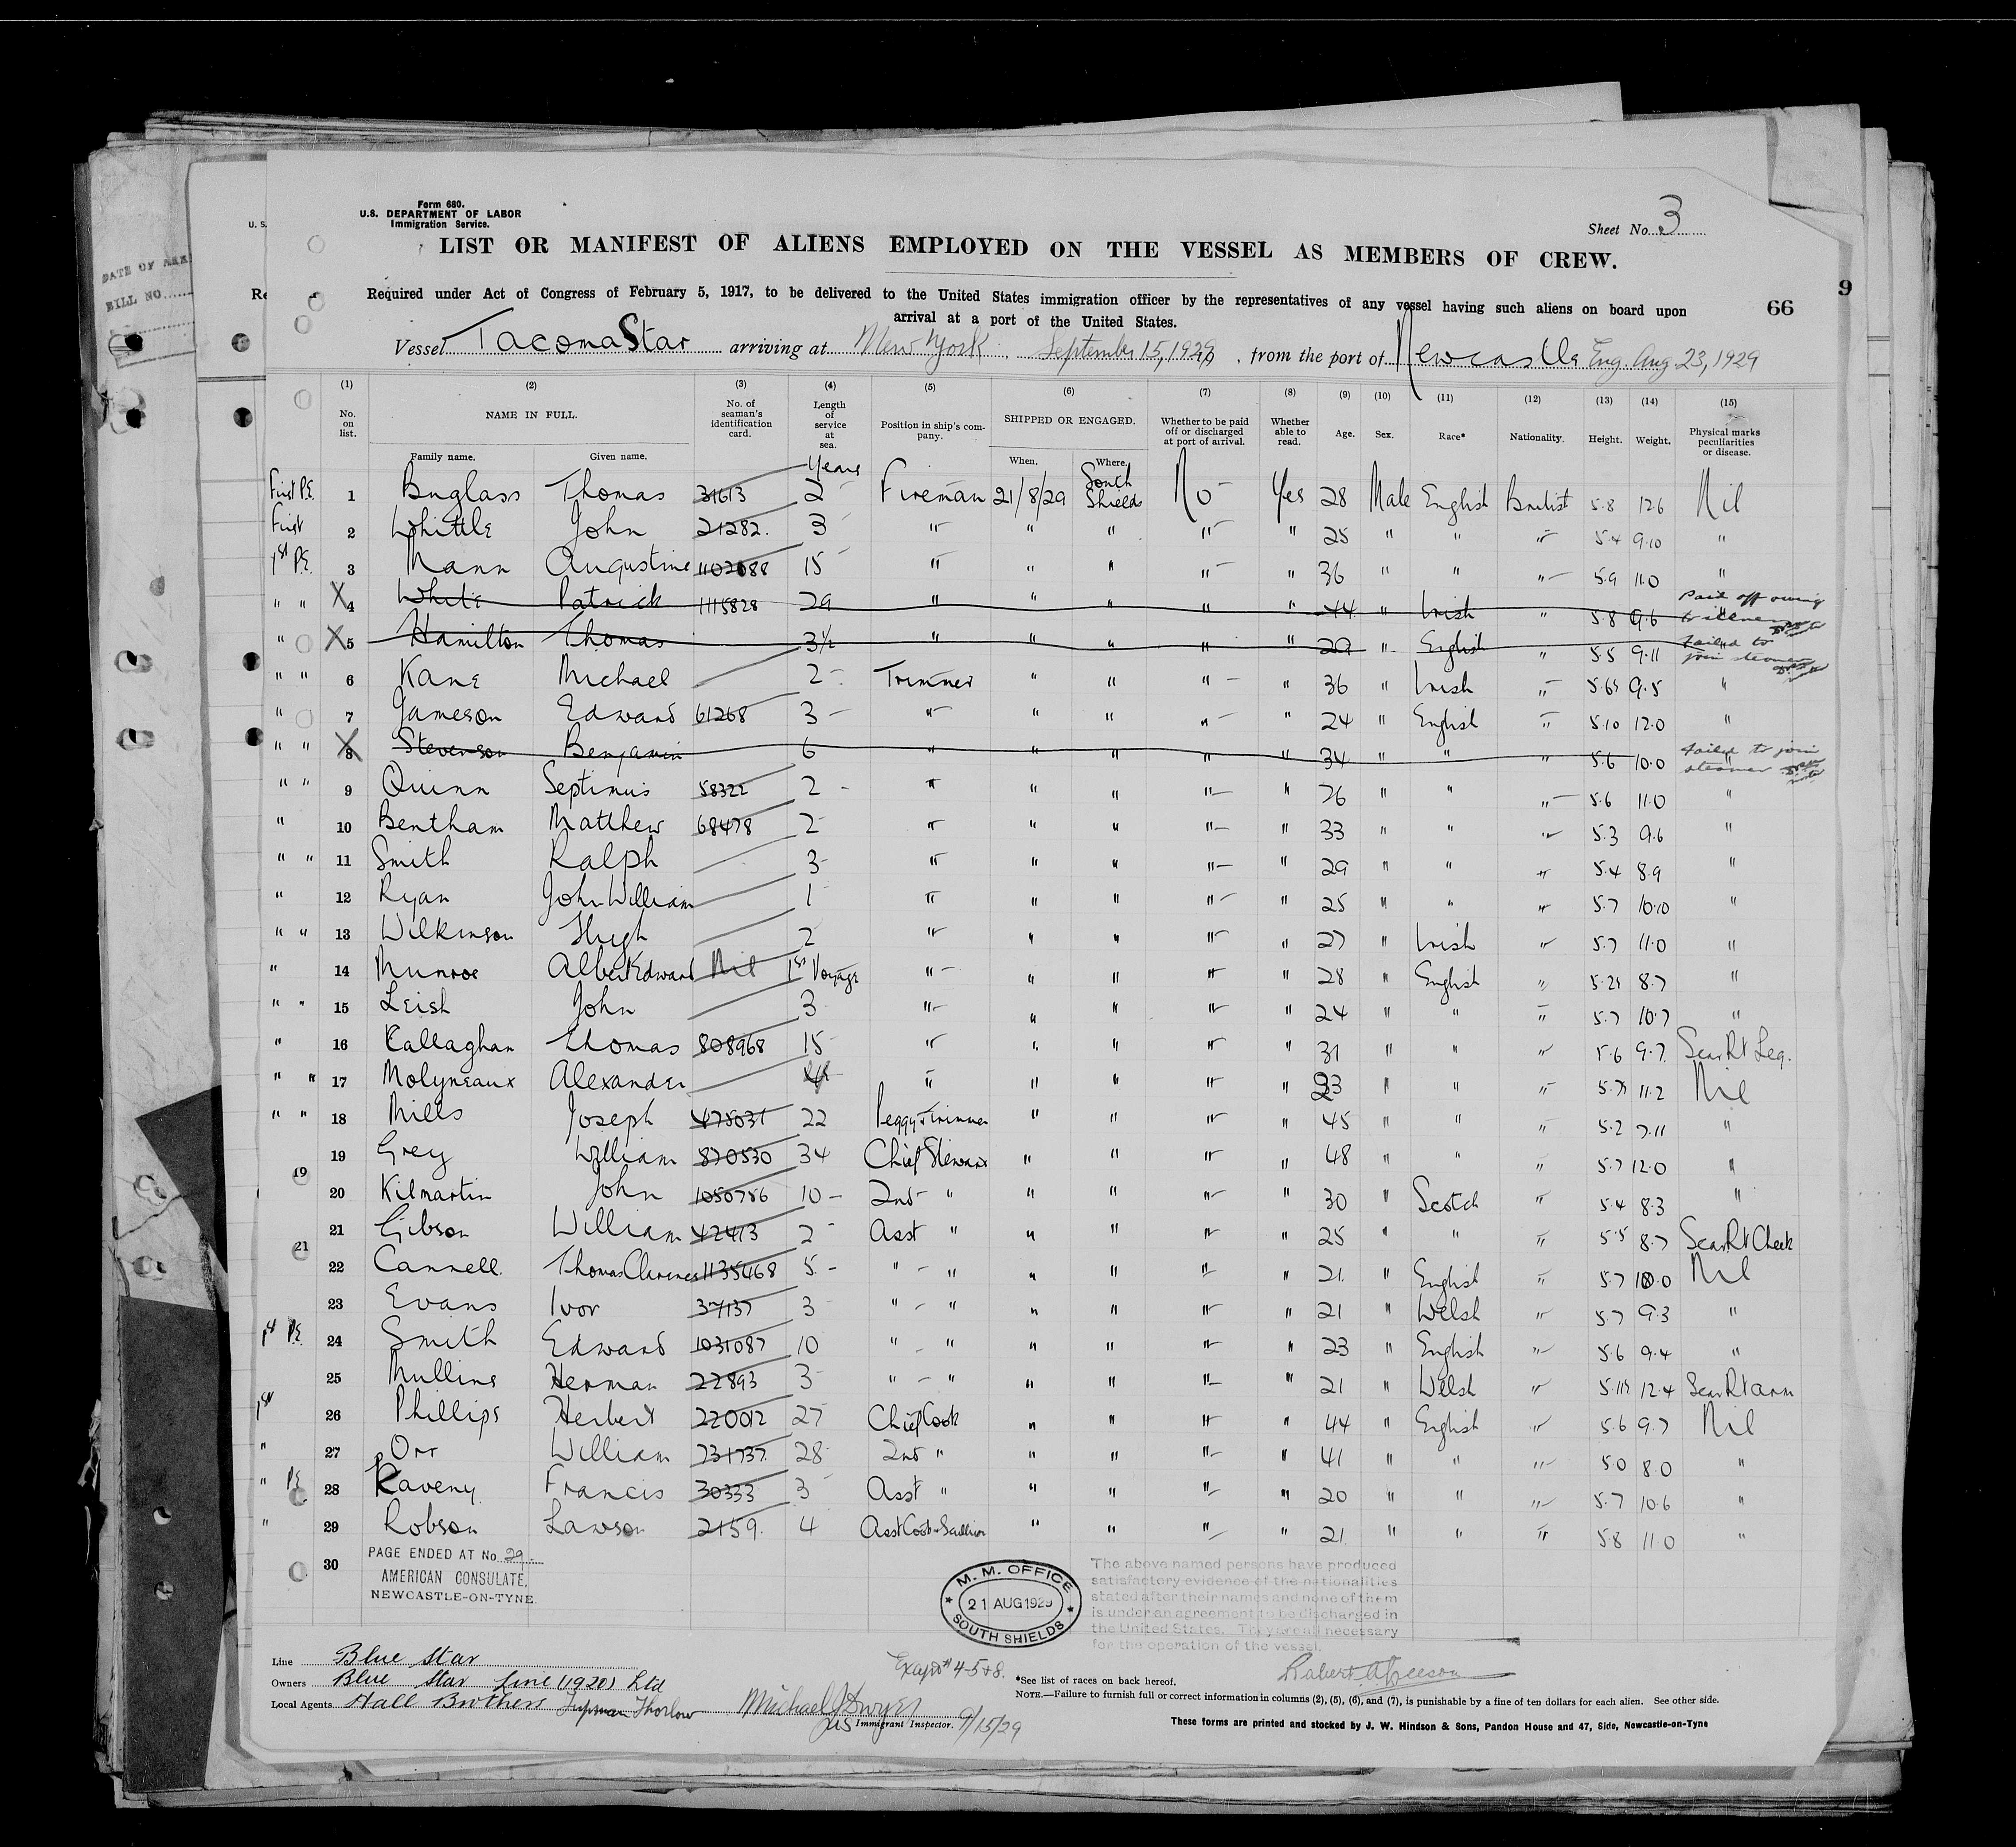 Form 680.
U.S. DEPARTMENT OF LABOR
Immigration Service.
U. S.
Sheet No. 3
LIST OR MANIFEST OF ALIENS EMPLOYED ON THE VESSEL AS MEMBERS OF CREW.
DATE OF
BILL NO.
9
66
Required under Act of Congress of February 5, 1917, to be delivered to the United States immigration officer by the representatives of any vessel having such aliens on board upon
arrival at a port of the United States.
Vessel Tacoma Star arriving at New York, September 15, 1929, from the port of Newcastle Eng. Aug 23, 1929
(1) (2) (3) (4) (5) (6) (7) (8) (9) (10) (11) (12) (13) (14) (15)
No. on list. NAME IN FULL. Family name. Given name. No. of seaman's identification card. Length of service at sea. Position in ship's company. SHIPPED OR ENGAGED. When. Where. Whether to be paid off or discharged at port of arrival. Whether able to read. Age. Sex. Race* Nationality. Height. Weight. Physical marks peculiarities or disease.
Years
First P.E. 1 Buglass Thomas 31613 2 Fireman 21/8/29 South Shields No Yes 28 Male English British 5.8 12.6 Nil
First 2 Whittle John 21282. 3 " " " " " 25 " " " 5.4 9.10 "
1st P.E. 3 Mann Augustine 15 " " " " " 36 " " " 5.9 11.0 "
" " X 4 White Patrick 1115828 29 " " " " " 44 " Irish " 5.8 9.6 Paid off owing to illness
" X 5 Hamilton Thomas 3½ " " " " 29 " English " 5.5 9.11 failed to join steamer
" " 6 Kane Michael 2 Trimmer " " " " 36 " Irish " 5.6½ 9.5 "
" 7 Jameson Edward 61268 3 " " " " " 24 " English " 5.10 12.0 "
" " X 8 Stevenson Benjamin 6 " " " " " 34 " " " 5.6 10.0 failed to join steamer
" " 9 Quinn Septimus 58322 2 " " " " " 26 " " " 5.6 11.0 "
" 10 Bentham Matthew 68478 2 " " " " " 33 " " " 5.3 9.6 "
" " 11 Smith Ralph 3 " " " " " 29 " " " 5.4 8.9 "
" 12 Ryan John William 1 " " " " " 25 " " " 5.7 10.10 "
" " 13 Wilkinson Hugh 2 " " " " " 27 " Irish " 5.7 11.0 "
" 14 Munroe Albert Edward Nil 1st Voyage " " " " " 28 " English " 5.2½ 8.7 "
" " 15 Leish John 3 " " " " " 24 " " " 5.7 10.7 "
" 16 Callaghan Thomas 808968 15 " " " " " 31 " " " 5.6 9.7 Scar Rt Leg.
" " 17 Molyneaux Alexander " " " " " 23 " " " 5.7½ 11.2 Nil
" " 18 Mills Joseph 478031 22 Peggy & Trimmer " " " " 45 " " " 5.2 7.11 "
19 Grey William 870530 34 Chief Steward " " " " 48 " " " 5.7 12.0 "
19
20 Kilmartin John 1050786 10 2nd " " " " " 30 " Scotch " 5.4 8.3 "
21 Gibson William 42413 2 Asst " " " " " 25 " " " 5.5 8.7 Scar Rt Cheek
21
22 Cannell Thomas Clarence 1135468 5 " " " " " " 21 " English " 5.7 10.0 Nil
23 Evans Ivor 37137 3 " " " " " " 21 " Welsh " 5.7 9.3 "
1st P.E. 24 Smith Edward 1031087 10 " " " " " " 23 " English " 5.6 9.4 "
25 Mullins Herman 22893 3 " " " " " " 21 " Welsh " 5.11½ 12.4 Scar Rt arm
1st 26 Phillips Herbert 220012 27 Chief Cook " " " " 44 " English " 5.6 9.7 Nil
" 27 Orr William 731737. 28 2nd " " " " " 41 " " " 5.0 8.0 "
" P.E. 28 Raveny Francis 30333 3 Asst " " " " " 20 " " " 5.7 10.6 "
" 29 Robson Lawson 2159. 4 Asst Cook & Scullion " " " " 21 " " " 5.8 11.0 "
30
PAGE ENDED AT No. 29.
AMERICAN CONSULATE,
NEWCASTLE-ON-TYNE.
M. M. OFFICE
21 AUG 1929
SOUTH SHIELDS
The above named persons have produced
satisfactory evidence of the nationalities
stated after their names and none of them
is under an agreement to be discharged in
the United States. They are all necessary
for the operation of the vessel.
Line Blue Star
Owners Blue Star Line (1920) Ltd
Local Agents Hall Brothers Tupman Thorlow
Except # 4-5 & 8.
Michael J Dwyer
US Immigrant Inspector. 9/15/29
*See list of races on back hereof.
NOTE.—Failure to furnish full or correct information in columns (2), (5), (6), and (7), is punishable by a fine of ten dollars for each alien. See other side.
These forms are printed and stocked by J. W. Hindson & Sons, Pandon House and 47, Side, Newcastle-on-Tyne